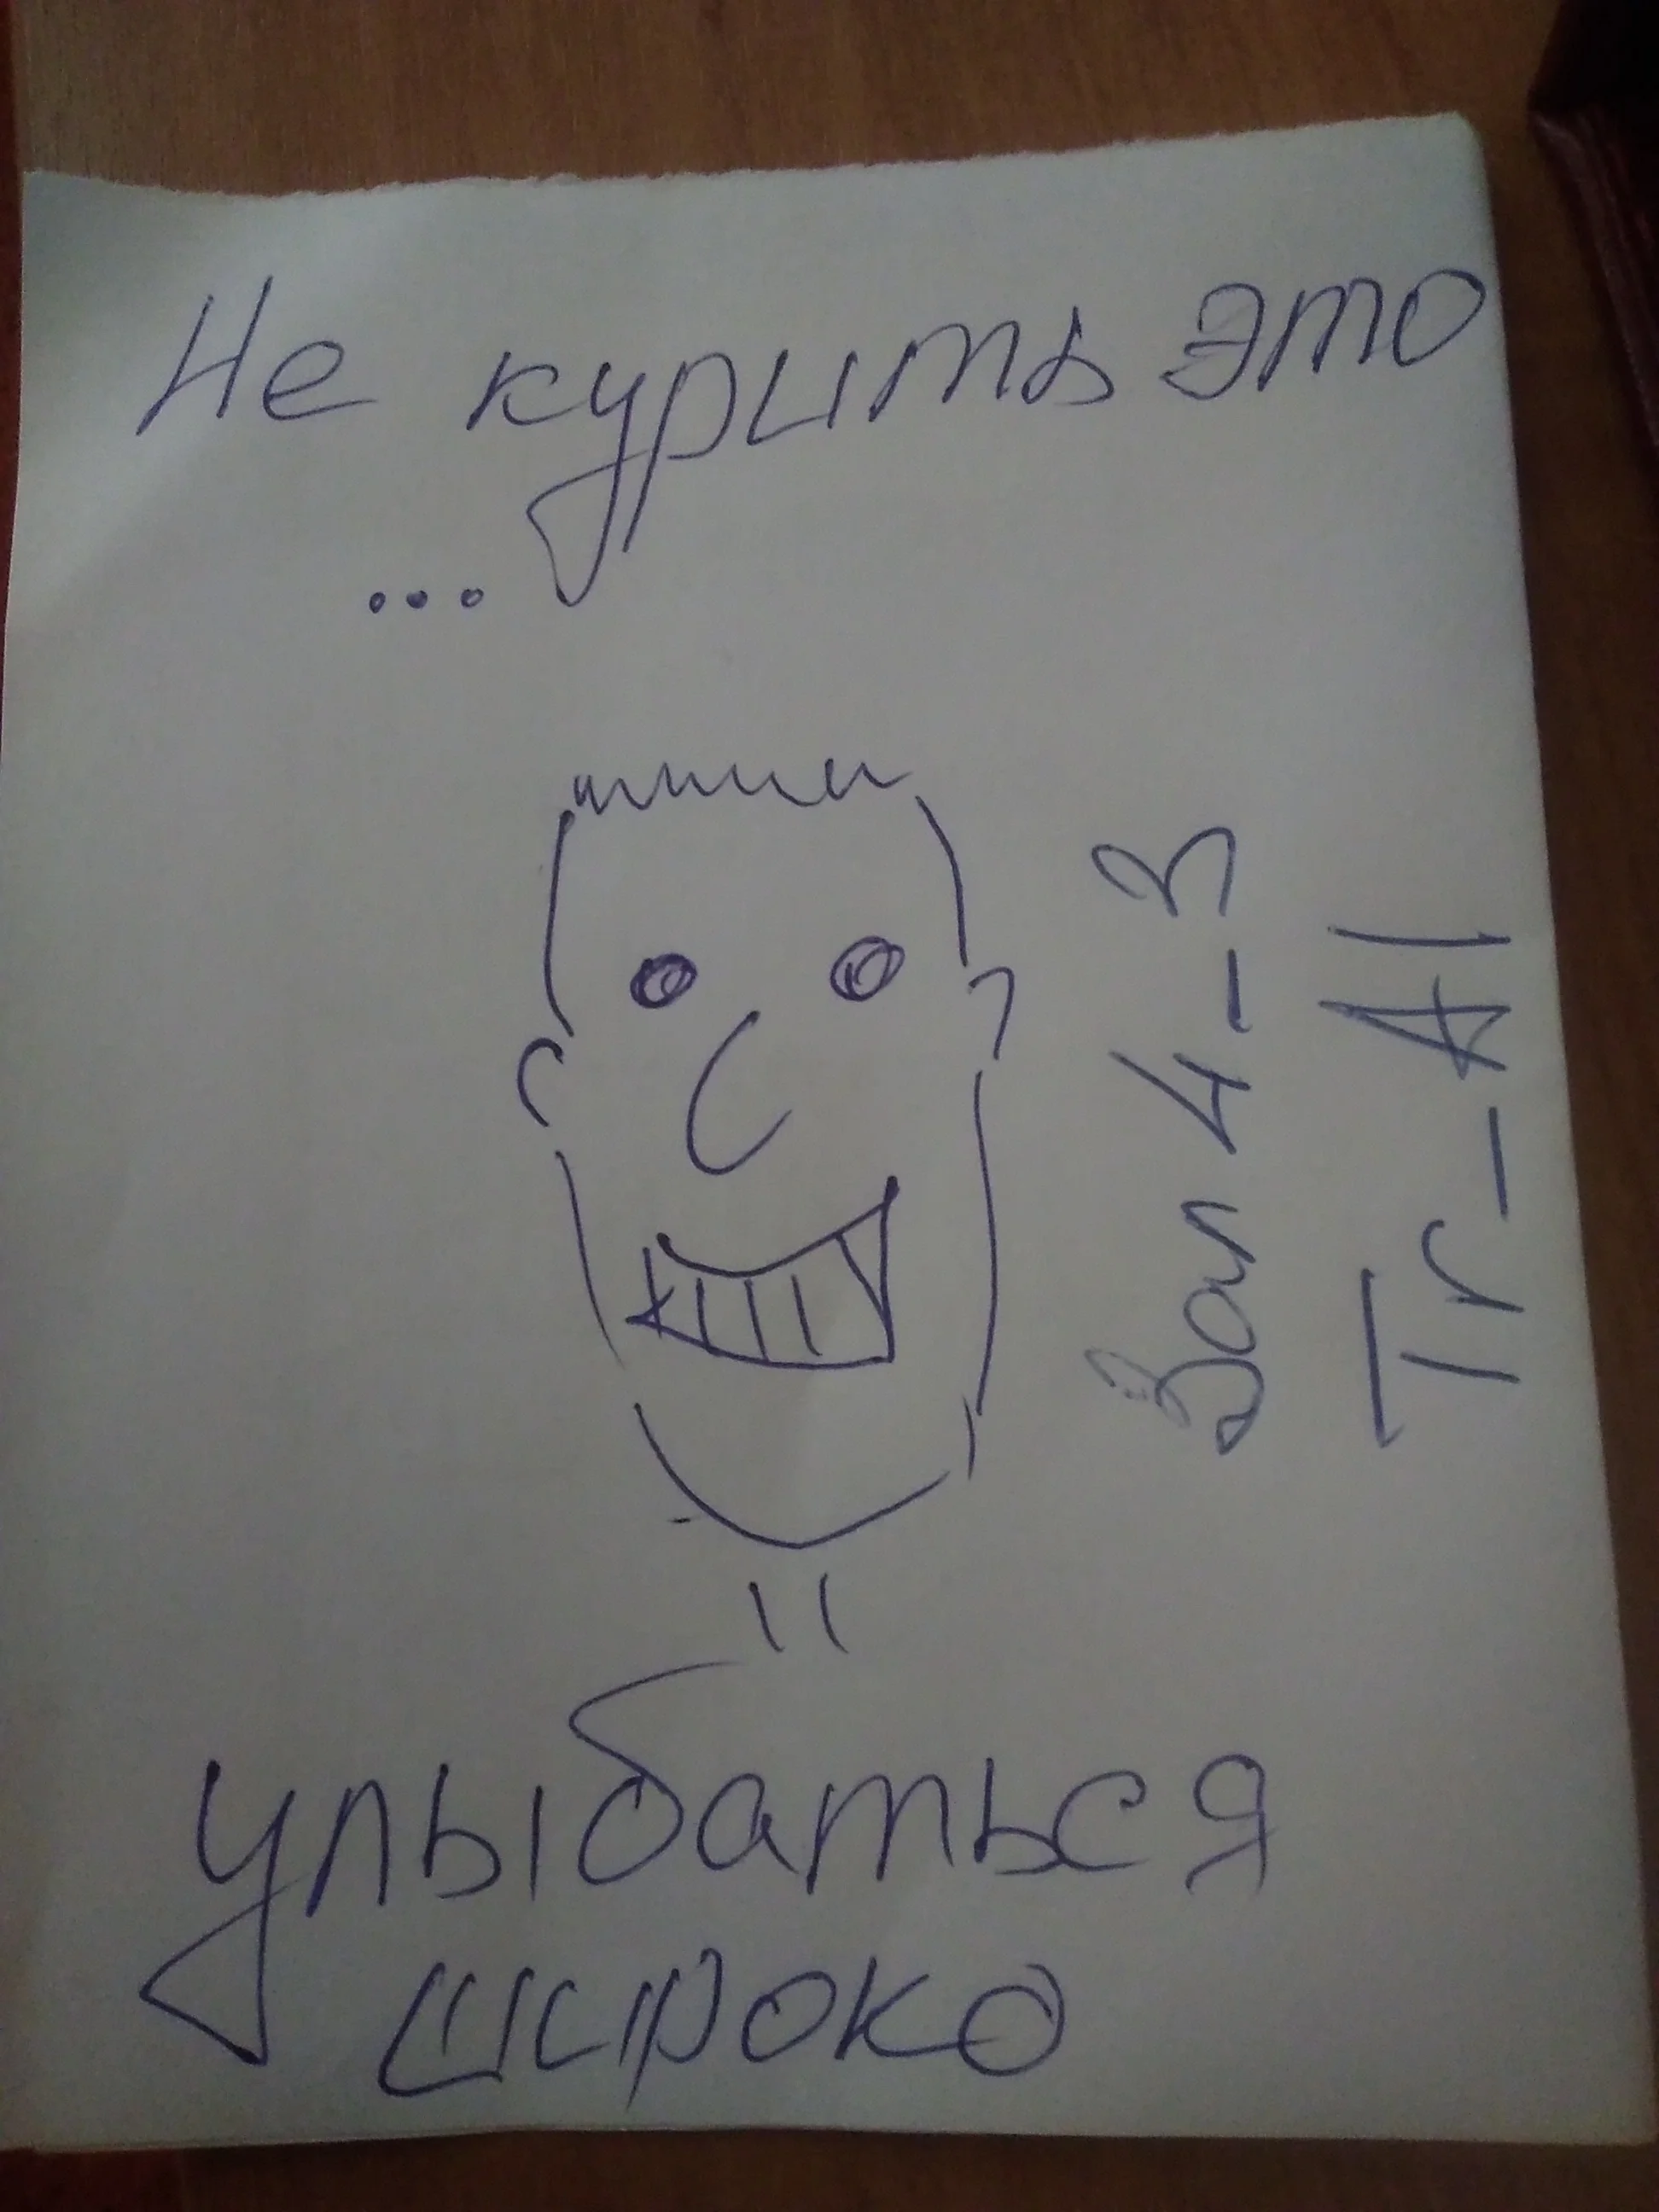 Не курить это
...
Зал 4_3
Tr_Al
улыбаться
широко